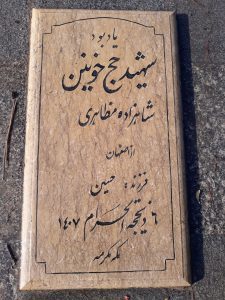 یادبود
شهید حج خونین
شاهزاده مظاهری
از اصفهان
فرزند: حسین
۶ ذیحجة الحرام ۱۴۰۷
مکه مکرمه